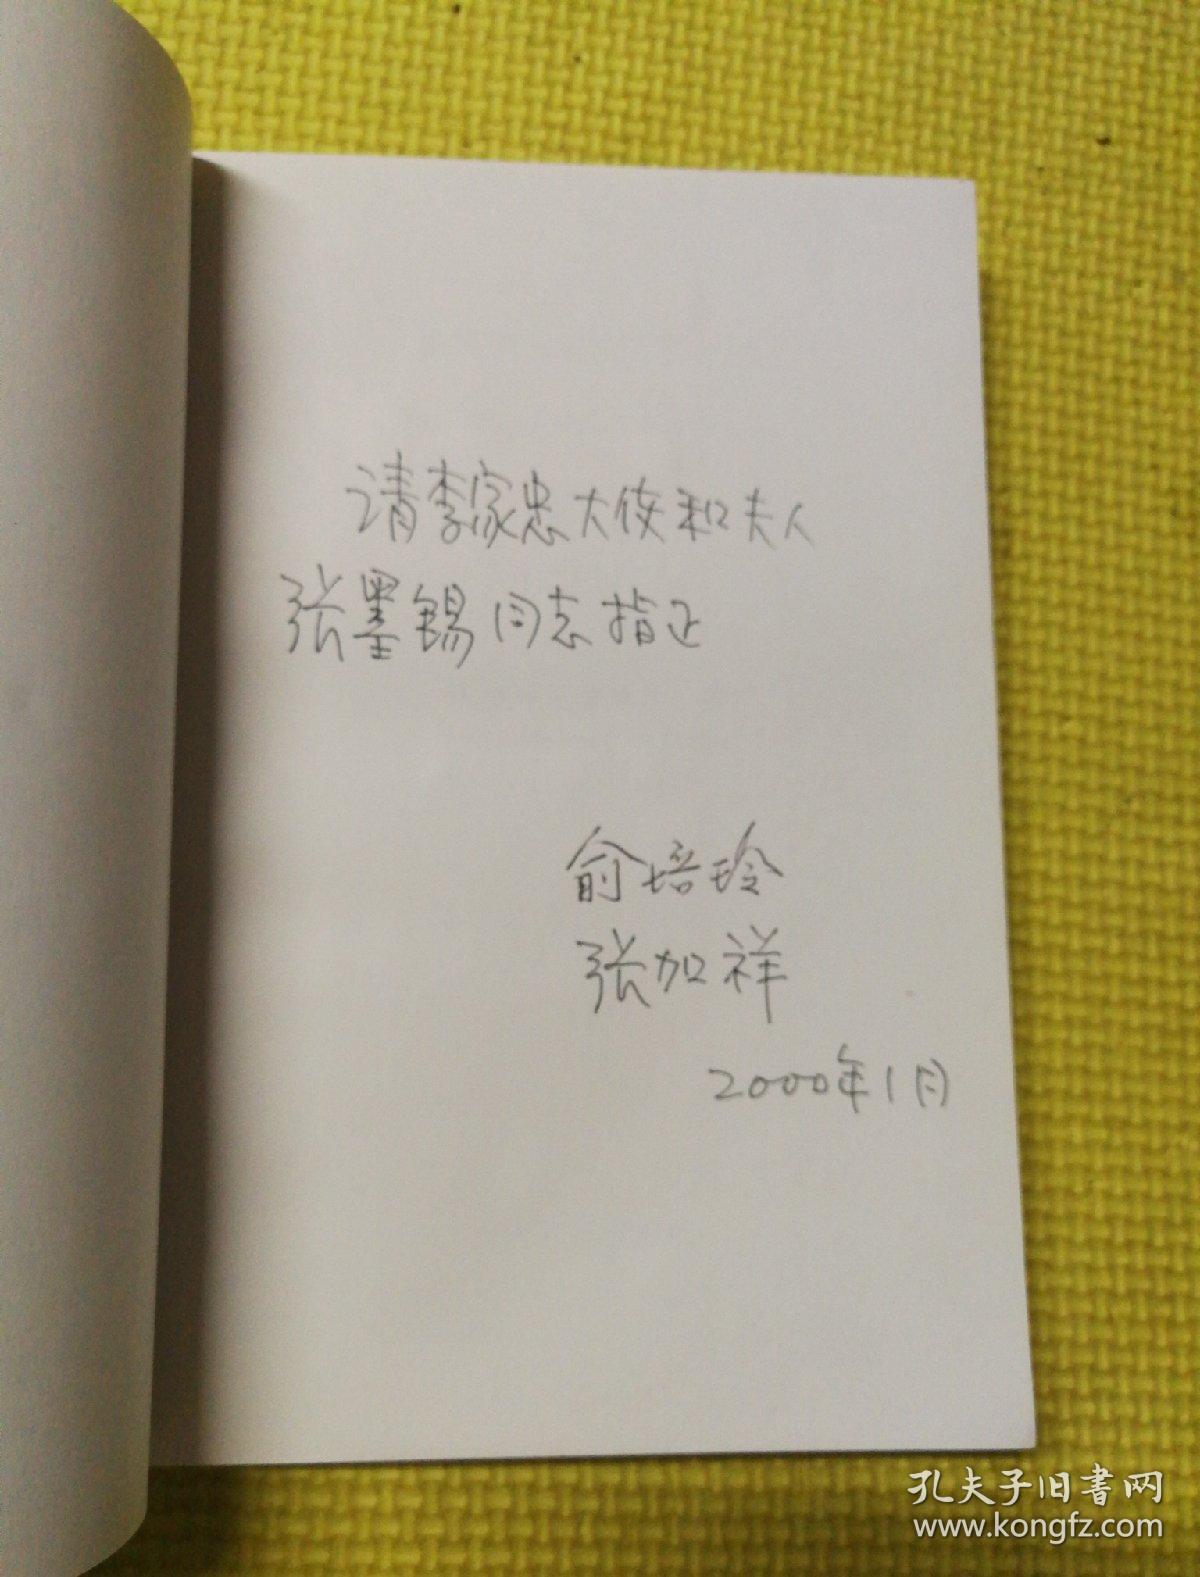 请李家忠大使和夫人
张墨锡同志指正
俞培玲
张加祥
2000年1月
孔夫子旧书网
www.kongfz.com